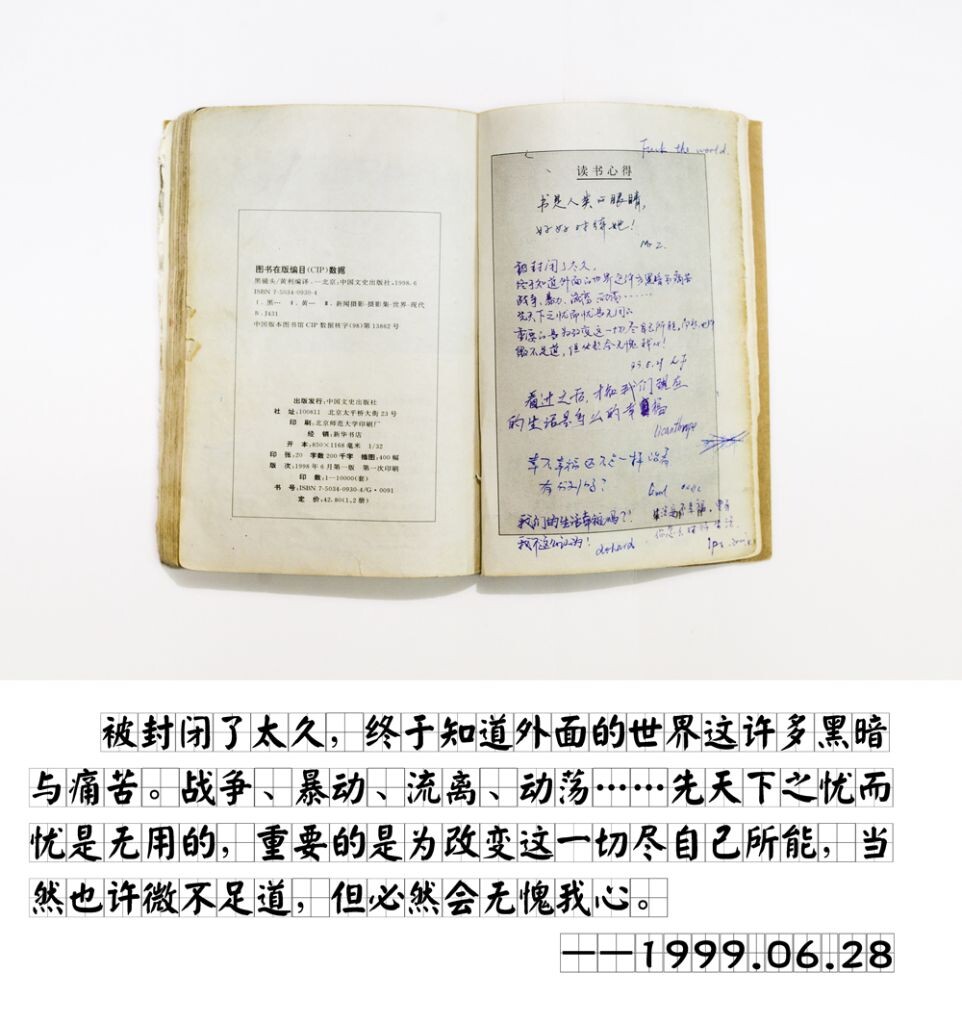 图书在版编目(CIP)数据
黑镜头/黄利编译.—北京:中国文史出版社,1998.6
ISBN 7-5034-0930-4
Ⅰ.黑… Ⅱ.黄… Ⅲ.新闻摄影-摄影集-世界-现代
Ⅳ.J431
中国版本图书馆CIP数据核字(98)第13862号
出版发行:中国文史出版社
社 址:100811 北京太平桥大街23号
印 刷:北京师范大学印刷厂
经 销:新华书店
开 本:850×1168毫米 1/32
印 张:20 字数 200千字 插图:400幅
版 次:1998年6月第一版 第一次印刷
印 数:1-10000(套)
书 号:ISBN 7-5034-0930-4/G·0091
定 价:42.80(1、2册)
Fuck the world.
读书心得
书是人类的眼睛,
好好对待她!
Mr Z.
被封闭了太久,
终于知道外面的世界这许多黑暗与痛苦
战争、暴力、流离、动荡……
先天下之忧而忧是无用的
重要的是为改变这一切尽自己所能,当然也许
微不足道,但必然会无愧我心!
看过之后,才知我们现在
的生活是多么的幸福
幸不幸福还不是一样活着
有分别吗?
我们的生活幸福吗?!
我不这么认为!
被封闭了太久,终于知道外面的世界这许多黑暗
与痛苦。战争、暴动、流离、动荡……先天下之忧而
忧是无用的,重要的是为改变这一切尽自己所能,当
然也许微不足道,但必然会无愧我心。
——1999.06.28